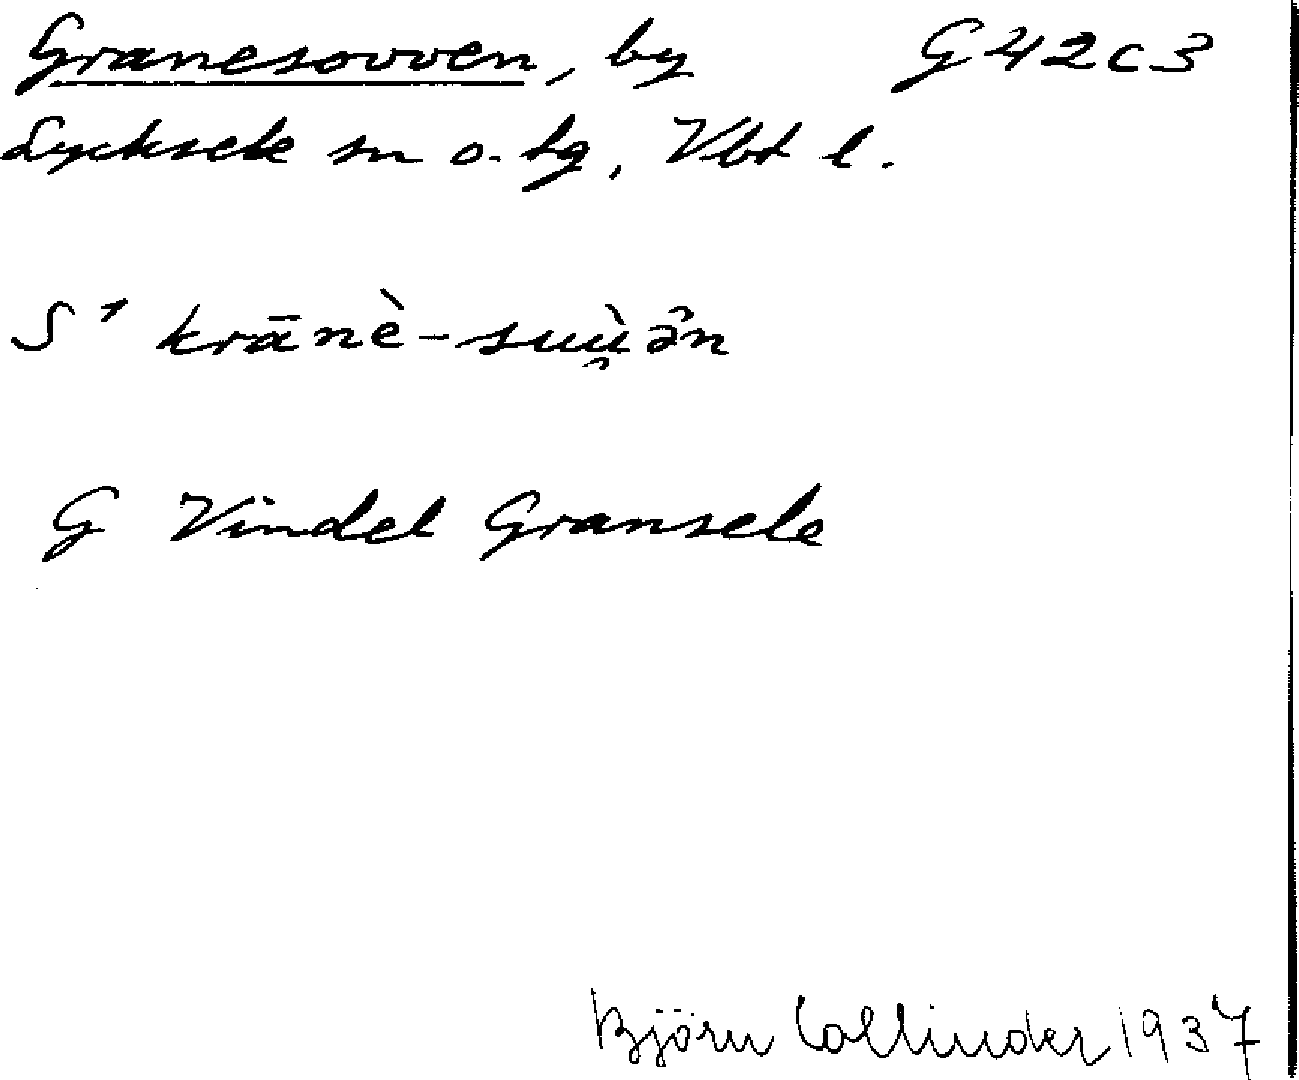 Granesovven, by G42c3
Lycksele sn o. tg, Vbt l.
S' krānè-suù̯ə̂n
G Vindel Gransele
Björn Collinder 1937